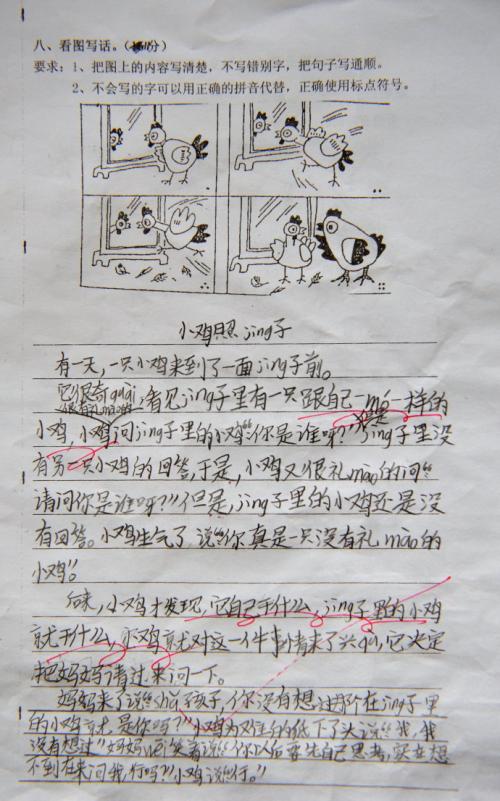 八、看图写话。(分)
要求：1、把图上的内容写清楚，不写错别字，把句子写通顺。
2、不会写的字可以用正确的拼音代替，正确使用标点符号。
小鸡照jing子
有一天，一只小鸡来到了一面jing子前。
它很奇guai，看见jing子里有一只跟自己一mō一样的
很有礼mào的
小鸡，小鸡问jing子里的小鸡“你是谁呀？”jing子里没
有另一只小鸡的回答，于是，小鸡又很礼mào的问“
请问你是谁呀？”但是，jing子里的小鸡还是没
有回答。小鸡生气了，说“你真是一只没有礼mào的
小鸡”。
后来，小鸡才发现，它自己干什么，jing子里的小鸡
就干什么，小鸡就对这一件事情来了兴，它决定
把妈妈请过来问一下。
妈妈来了说“孩子，你没有想过那个在jing子里
的小鸡就是你吗？”小鸡为难的低下了头说“我，我
没有想过”妈妈笑着说“你以后要先自己思考，实在想
不到在来问我，行吗？”小鸡说“行。”